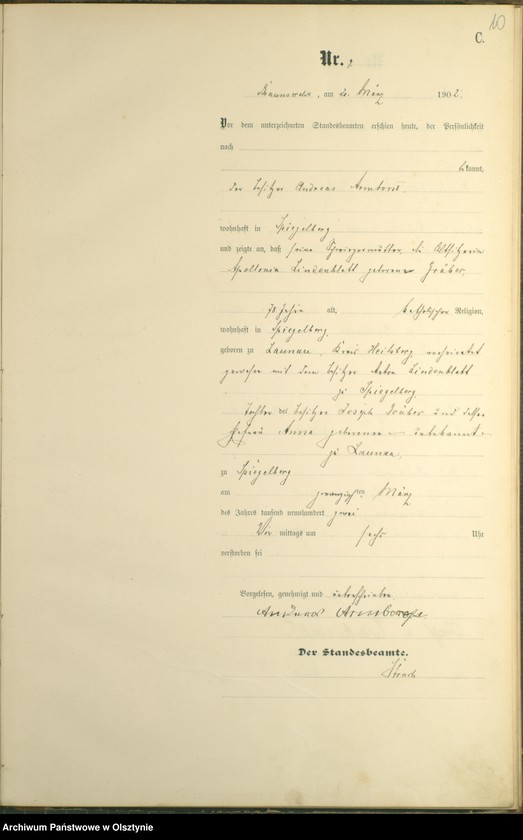 10
C.
Nr. 2
am 20. März 1902.
Vor dem unterzeichneten Standesbeamten erschien heute, der Persönlichkeit
nach
bekannt,
der Besitzer Andreas
wohnhaft in Spiegelberg
und zeigte an, daß seine Schwiegermutter, die Altsitzerin
Apollonia Lindenblatt geborene Gräber,
78 Jahre alt, katholischer Religion,
wohnhaft in Spiegelberg,
geboren zu Launau, Kreis Heilsberg, verheiratet
gewesen mit dem Besitzer Anton Lindenblatt
zu Spiegelberg,
Tochter des Besitzer Joseph Gräber und dessen
Ehefrau Anna geborene – unbekannt –
zu Launau,
zu Spiegelberg
am zwanzigsten März
des Jahres tausend neunhundert zwei
Vor mittags um sechs Uhr
verstorben sei
Vorgelesen, genehmigt und unterschrieben
Andreas
Der Standesbeamte.
Archiwum Państwowe w Olsztynie